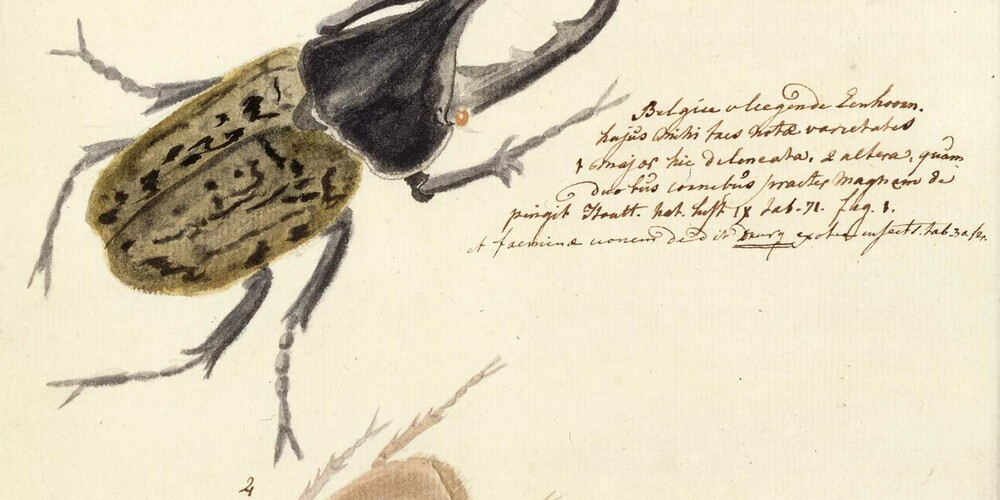 Belgice vliegende Eenhoorn.
hujus mihi tres notæ varietates
1 major hic delineata, 2 altera, quam
duobus cornibus præter magnum de
pingit Houtt. nat. hist. IX tab. 71. fig. 1.
et faeminæ iconem dedit Drury exot. insects. tab. 30. f. 2.
2